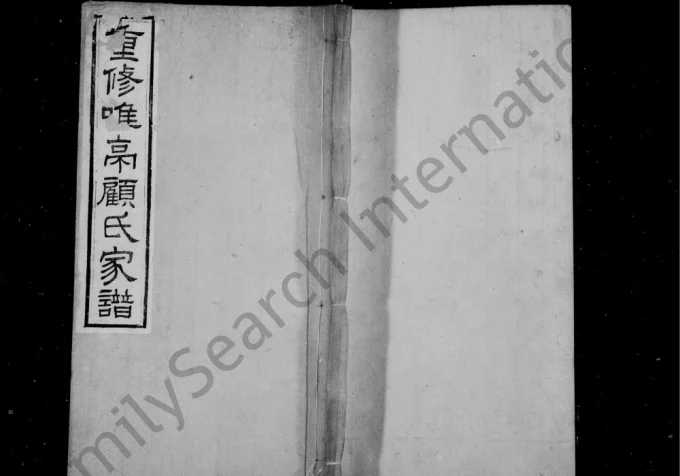 重修唯亭顧氏家譜
milySearch Internatio